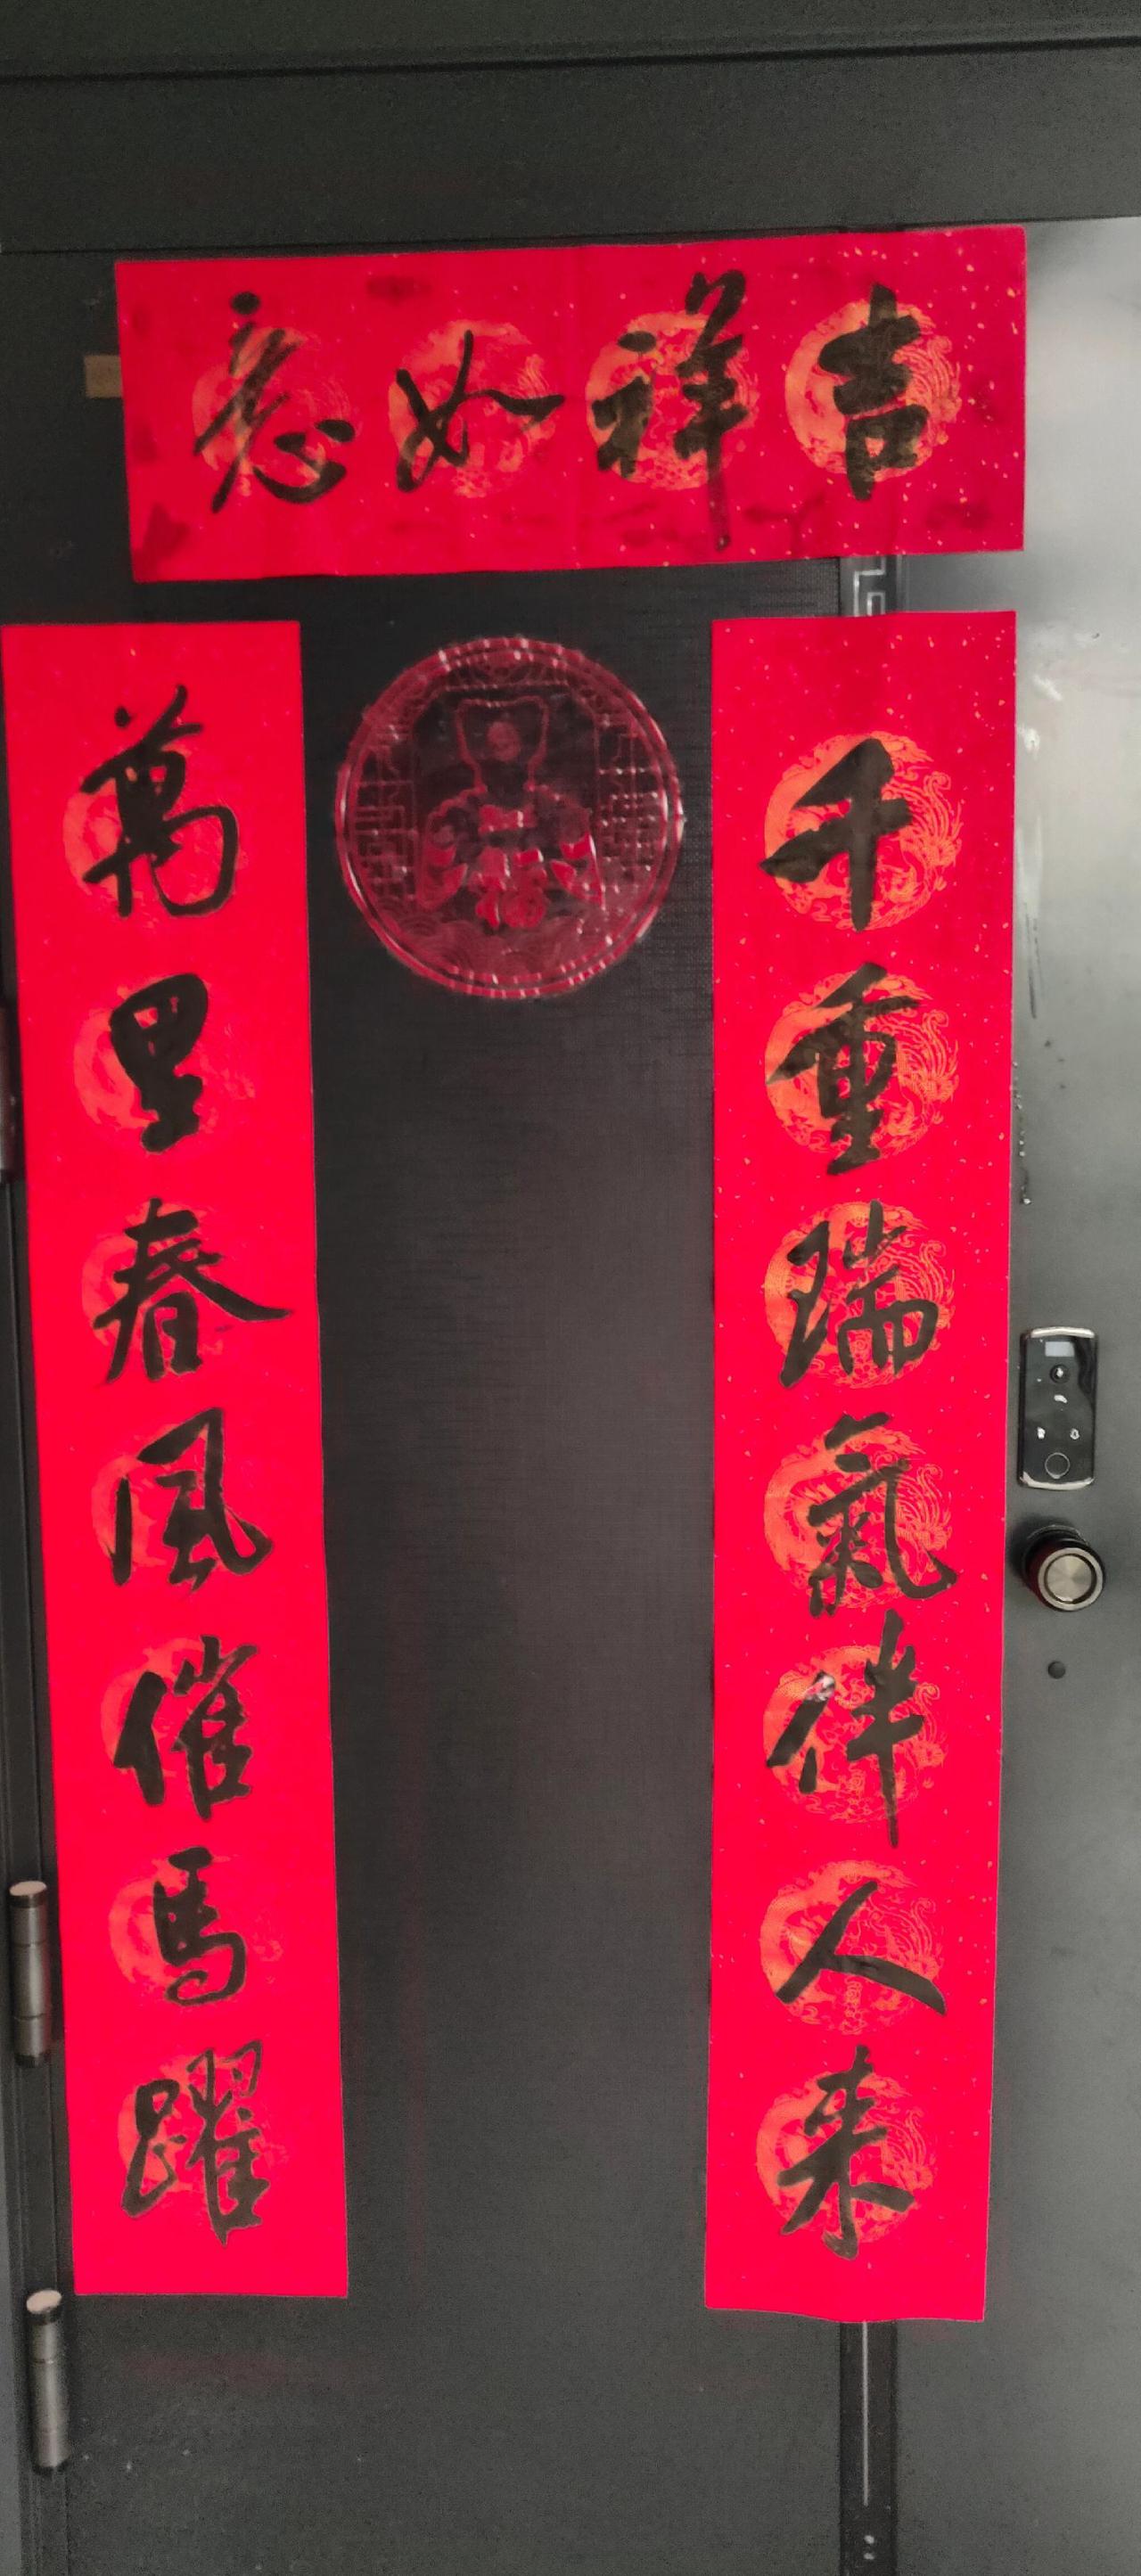 吉祥如意
千重瑞氣伴人来
萬里春風催馬躍